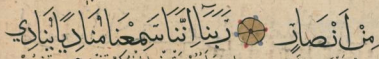 مِنْ اَنْصَارٍ رَبَّنَٓا اِنَّنَا سَمِعْنَا مُنَادِيًا يُنَادِي